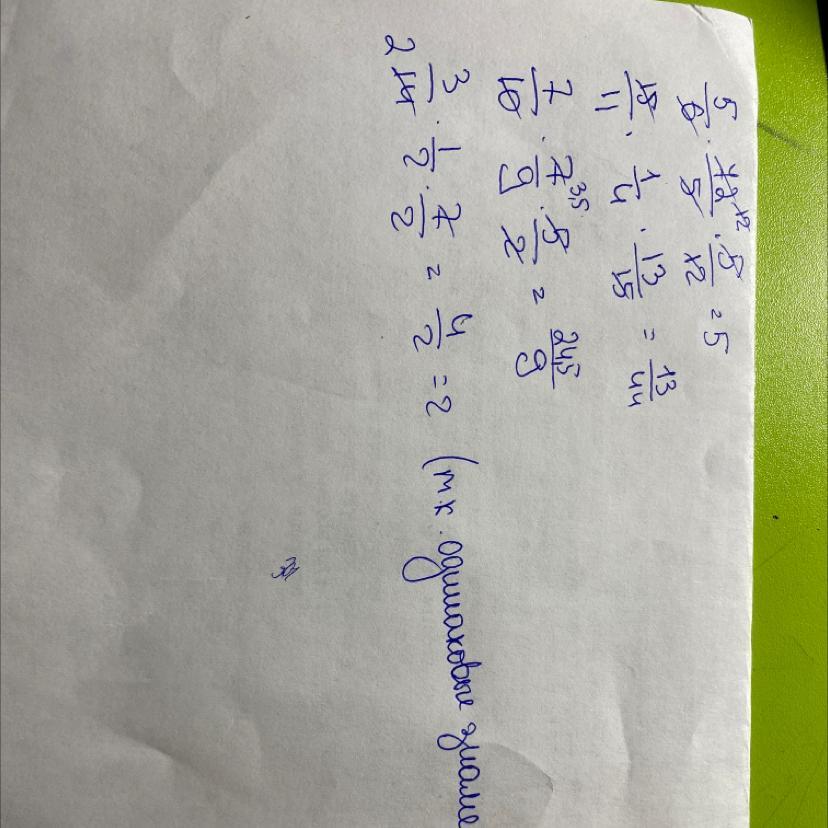 5/6 · 12/5 · 5/12 = 5
15/11 · 1/4 · 13/15 = 13/44
7/10 · 7/9 · 5/2 = 24,5/9
3/14 · 1/2 · 7/2 = 4/2 = 2 (т.к. одинаковые знаме